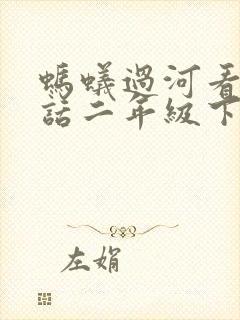 螞蟻過河看
話二年級下
左娟